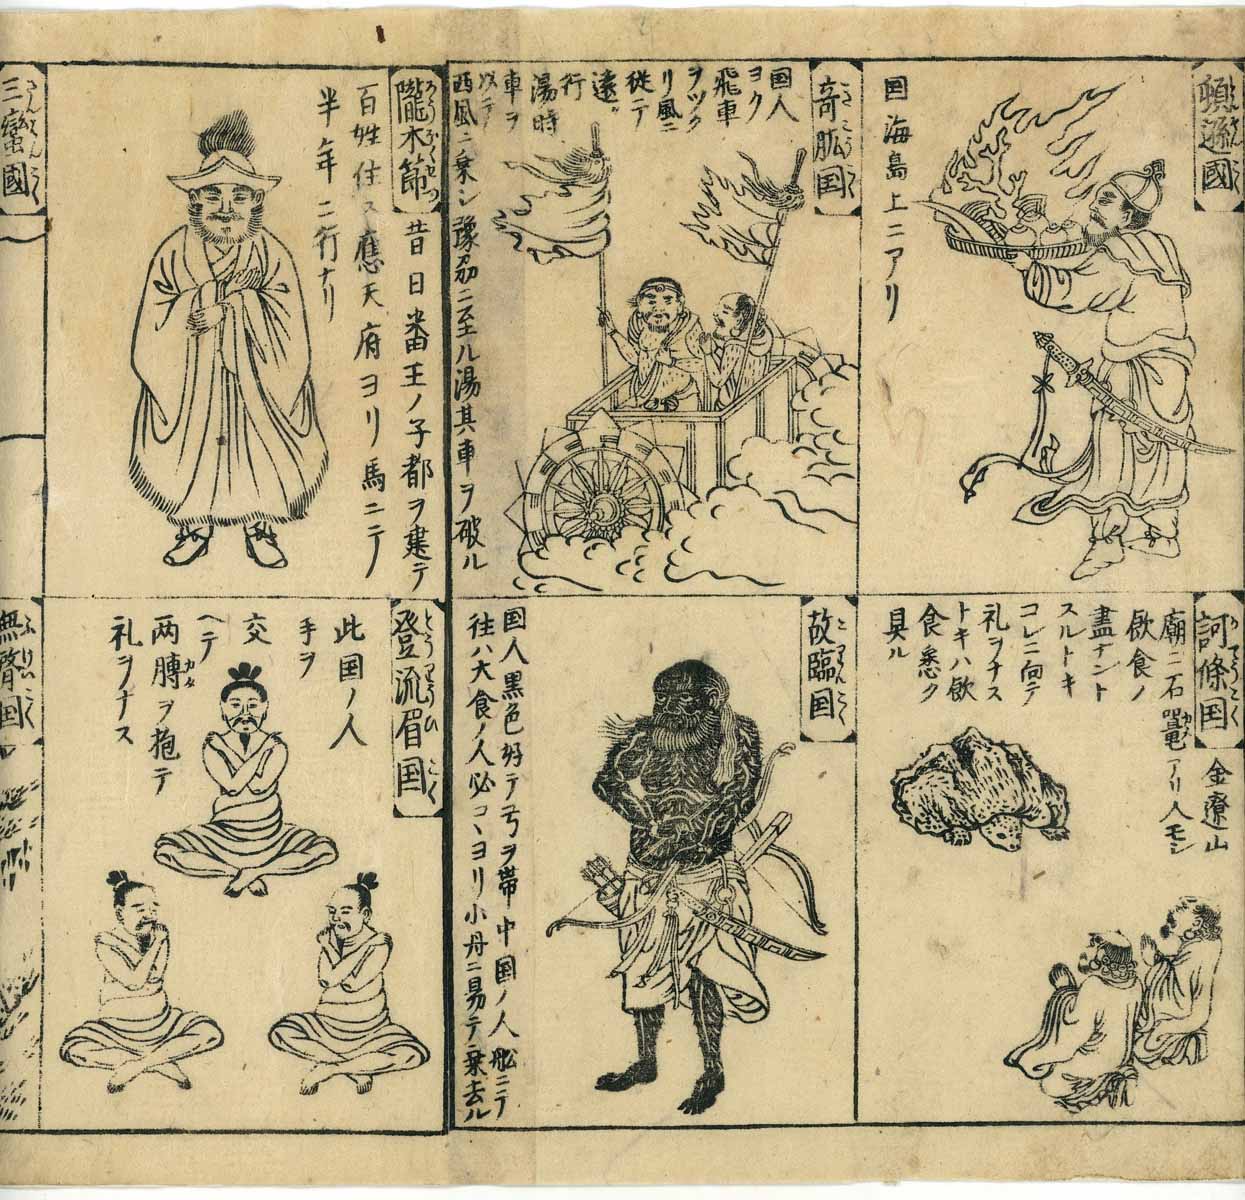 頓遜國
国海島上ニアリ
訶條国
かてうこく
金遼山
廟ニ石鼋アリ人モシ
飲食ノ
盡ナント
スルトキ
コレニ向テ
礼ヲナス
トキハ飲
食悉ク
具ル
奇肱国
きこうこく
国人
ヨク
飛車
ヲツク
リ風ニ
従テ
遠
行
湯時
車ヲ
以テ
西風ニ乗シ豫刕ニ至ル湯其車ヲ破ル
故臨国
こりんこく
国人黒色好テ弓ヲ帯中国ノ人舩ニテ
往ハ大食ノ人必コヽヨリ小舟ニ易テ乗去ル
瓏木節
昔日番王ノ子都ヲ建テ
百姓住ス應天府ヨリ馬ニテ
半年ニ行ナリ
登流眉国
とうりうびこく
此国ノ人
手ヲ
交
ヘテ
两膊ヲ抱テ
礼ヲナス
三蠻國
さんばんこく
無䏿国